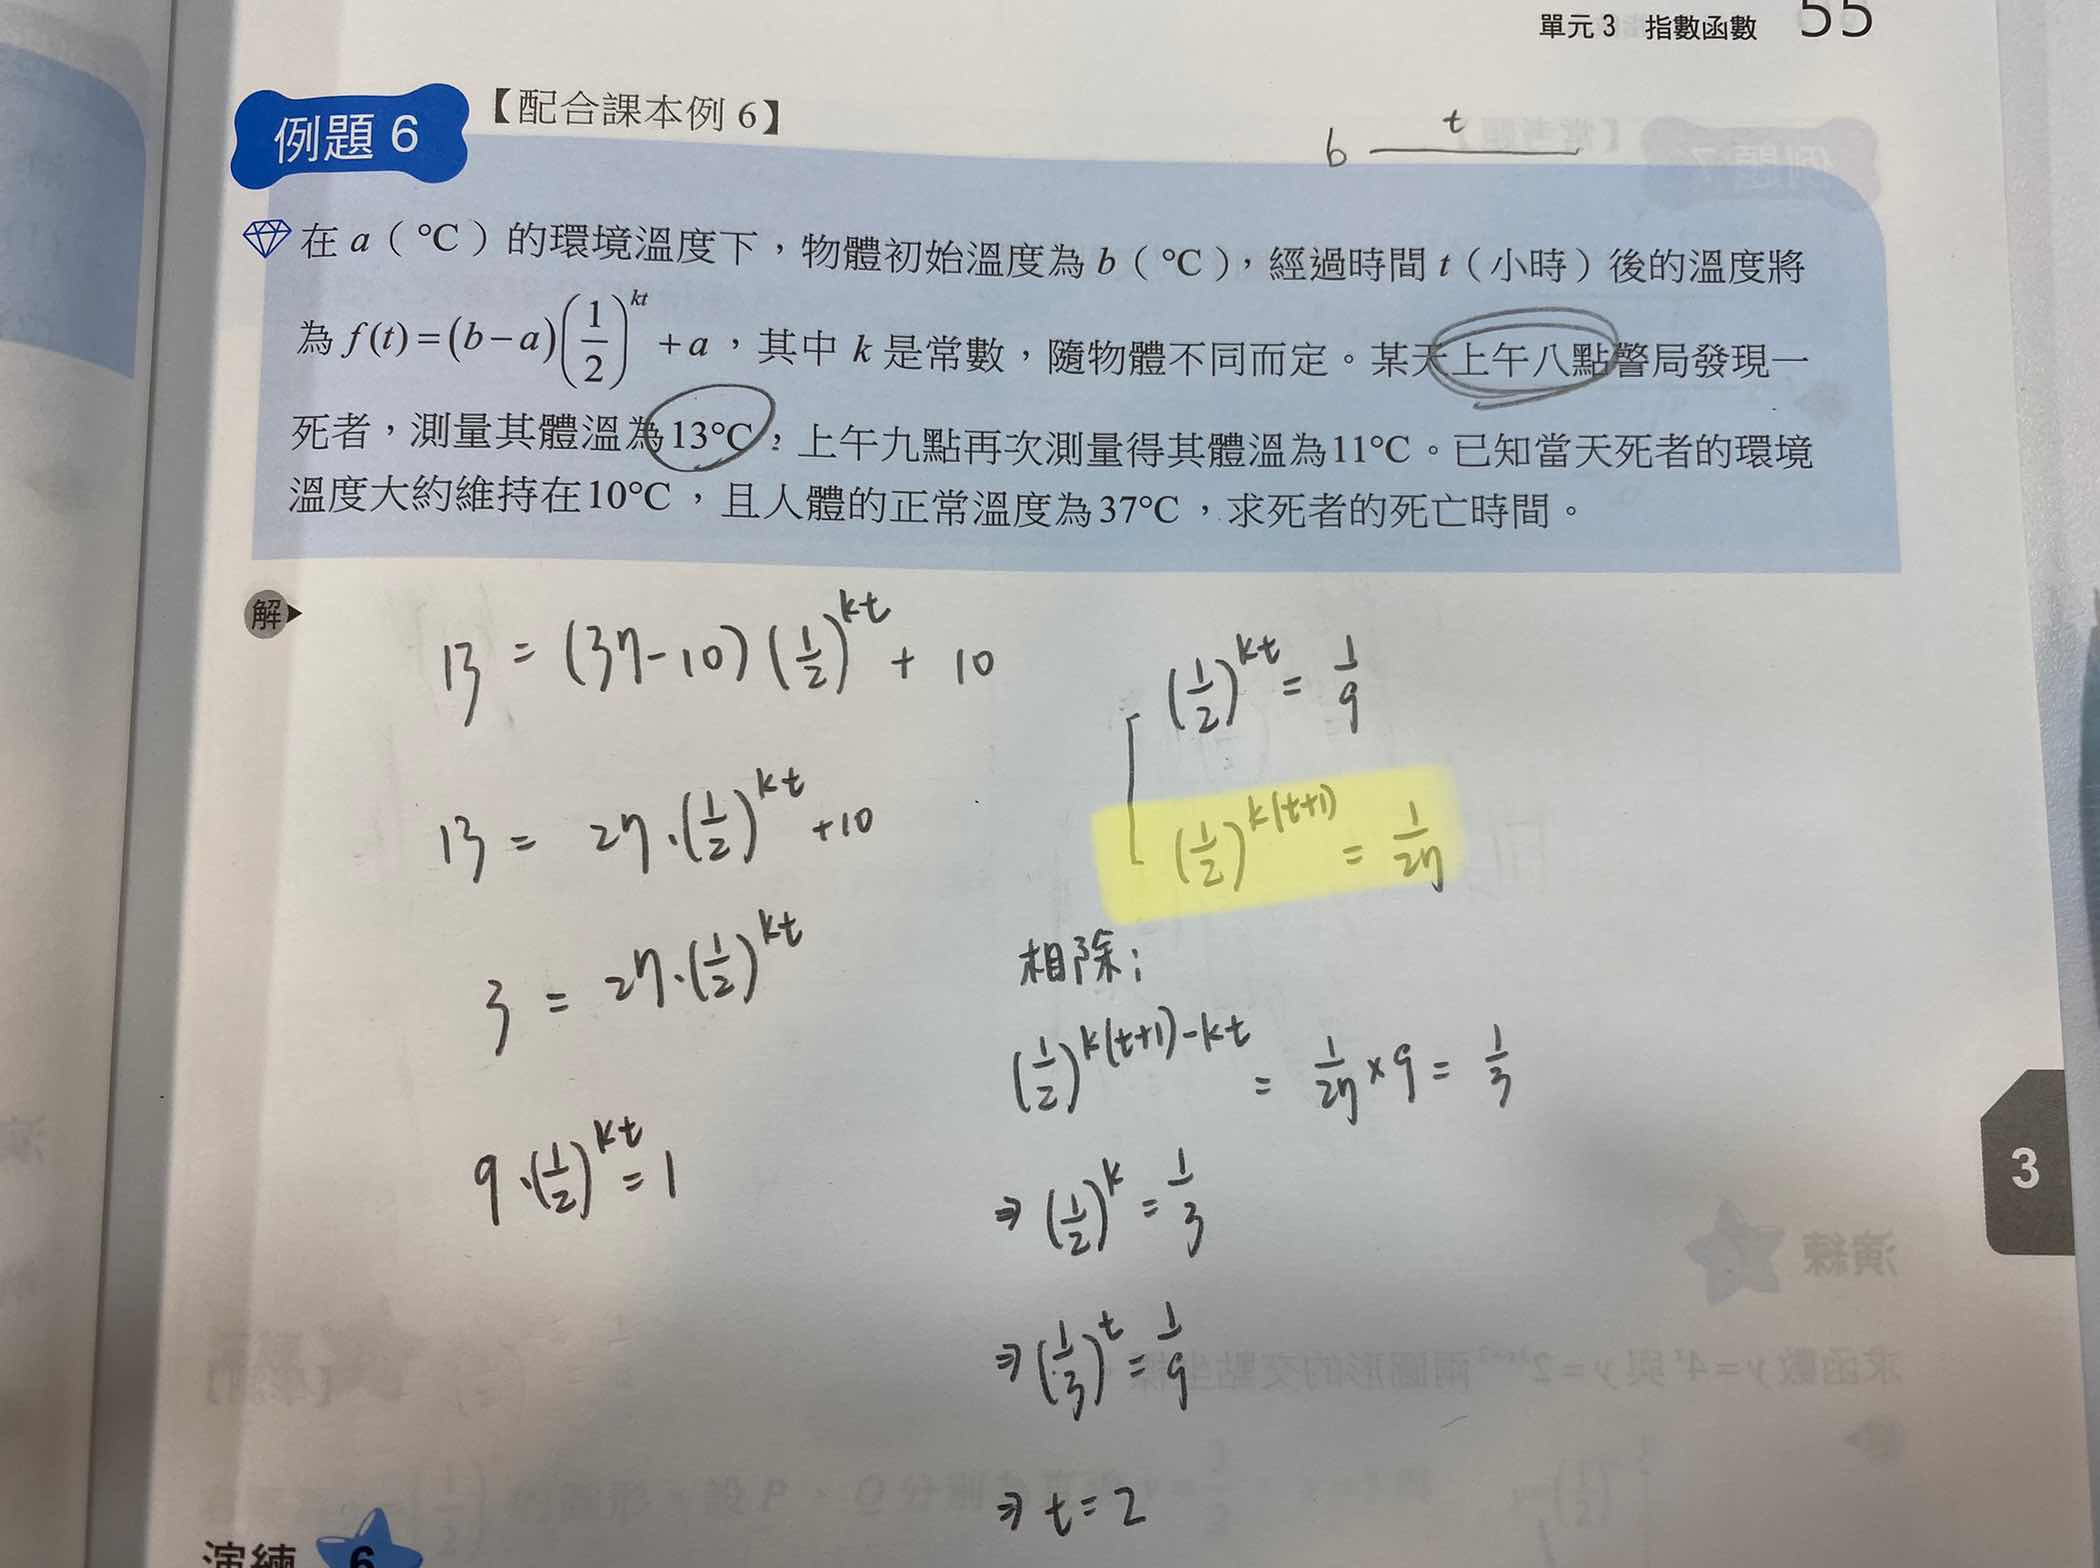 單元 3 指數函數 55
例題 6 【配合課本例 6】
b t
在 a（°C）的環境溫度下，物體初始溫度為 b（°C），經過時間 t（小時）後的溫度將
為 f(t)=(b-a)(1/2)^kt +a，其中 k 是常數，隨物體不同而定。某天上午八點警局發現一
死者，測量其體溫為13°C，上午九點再次測量得其體溫為11°C。已知當天死者的環境
溫度大約維持在10°C，且人體的正常溫度為37°C，求死者的死亡時間。
解
13 = (37-10)(1/2)^kt + 10
13 = 27·(1/2)^kt +10
3 = 27·(1/2)^kt
9·(1/2)^kt = 1
(1/2)^kt = 1/9
(1/2)^k(t+1) = 1/27
相除：
(1/2)^k(t+1)-kt = 1/27 × 9 = 1/3
⇒ (1/2)^k = 1/3
⇒ (1/3)^t = 1/9
⇒ t = 2
3
演練 6